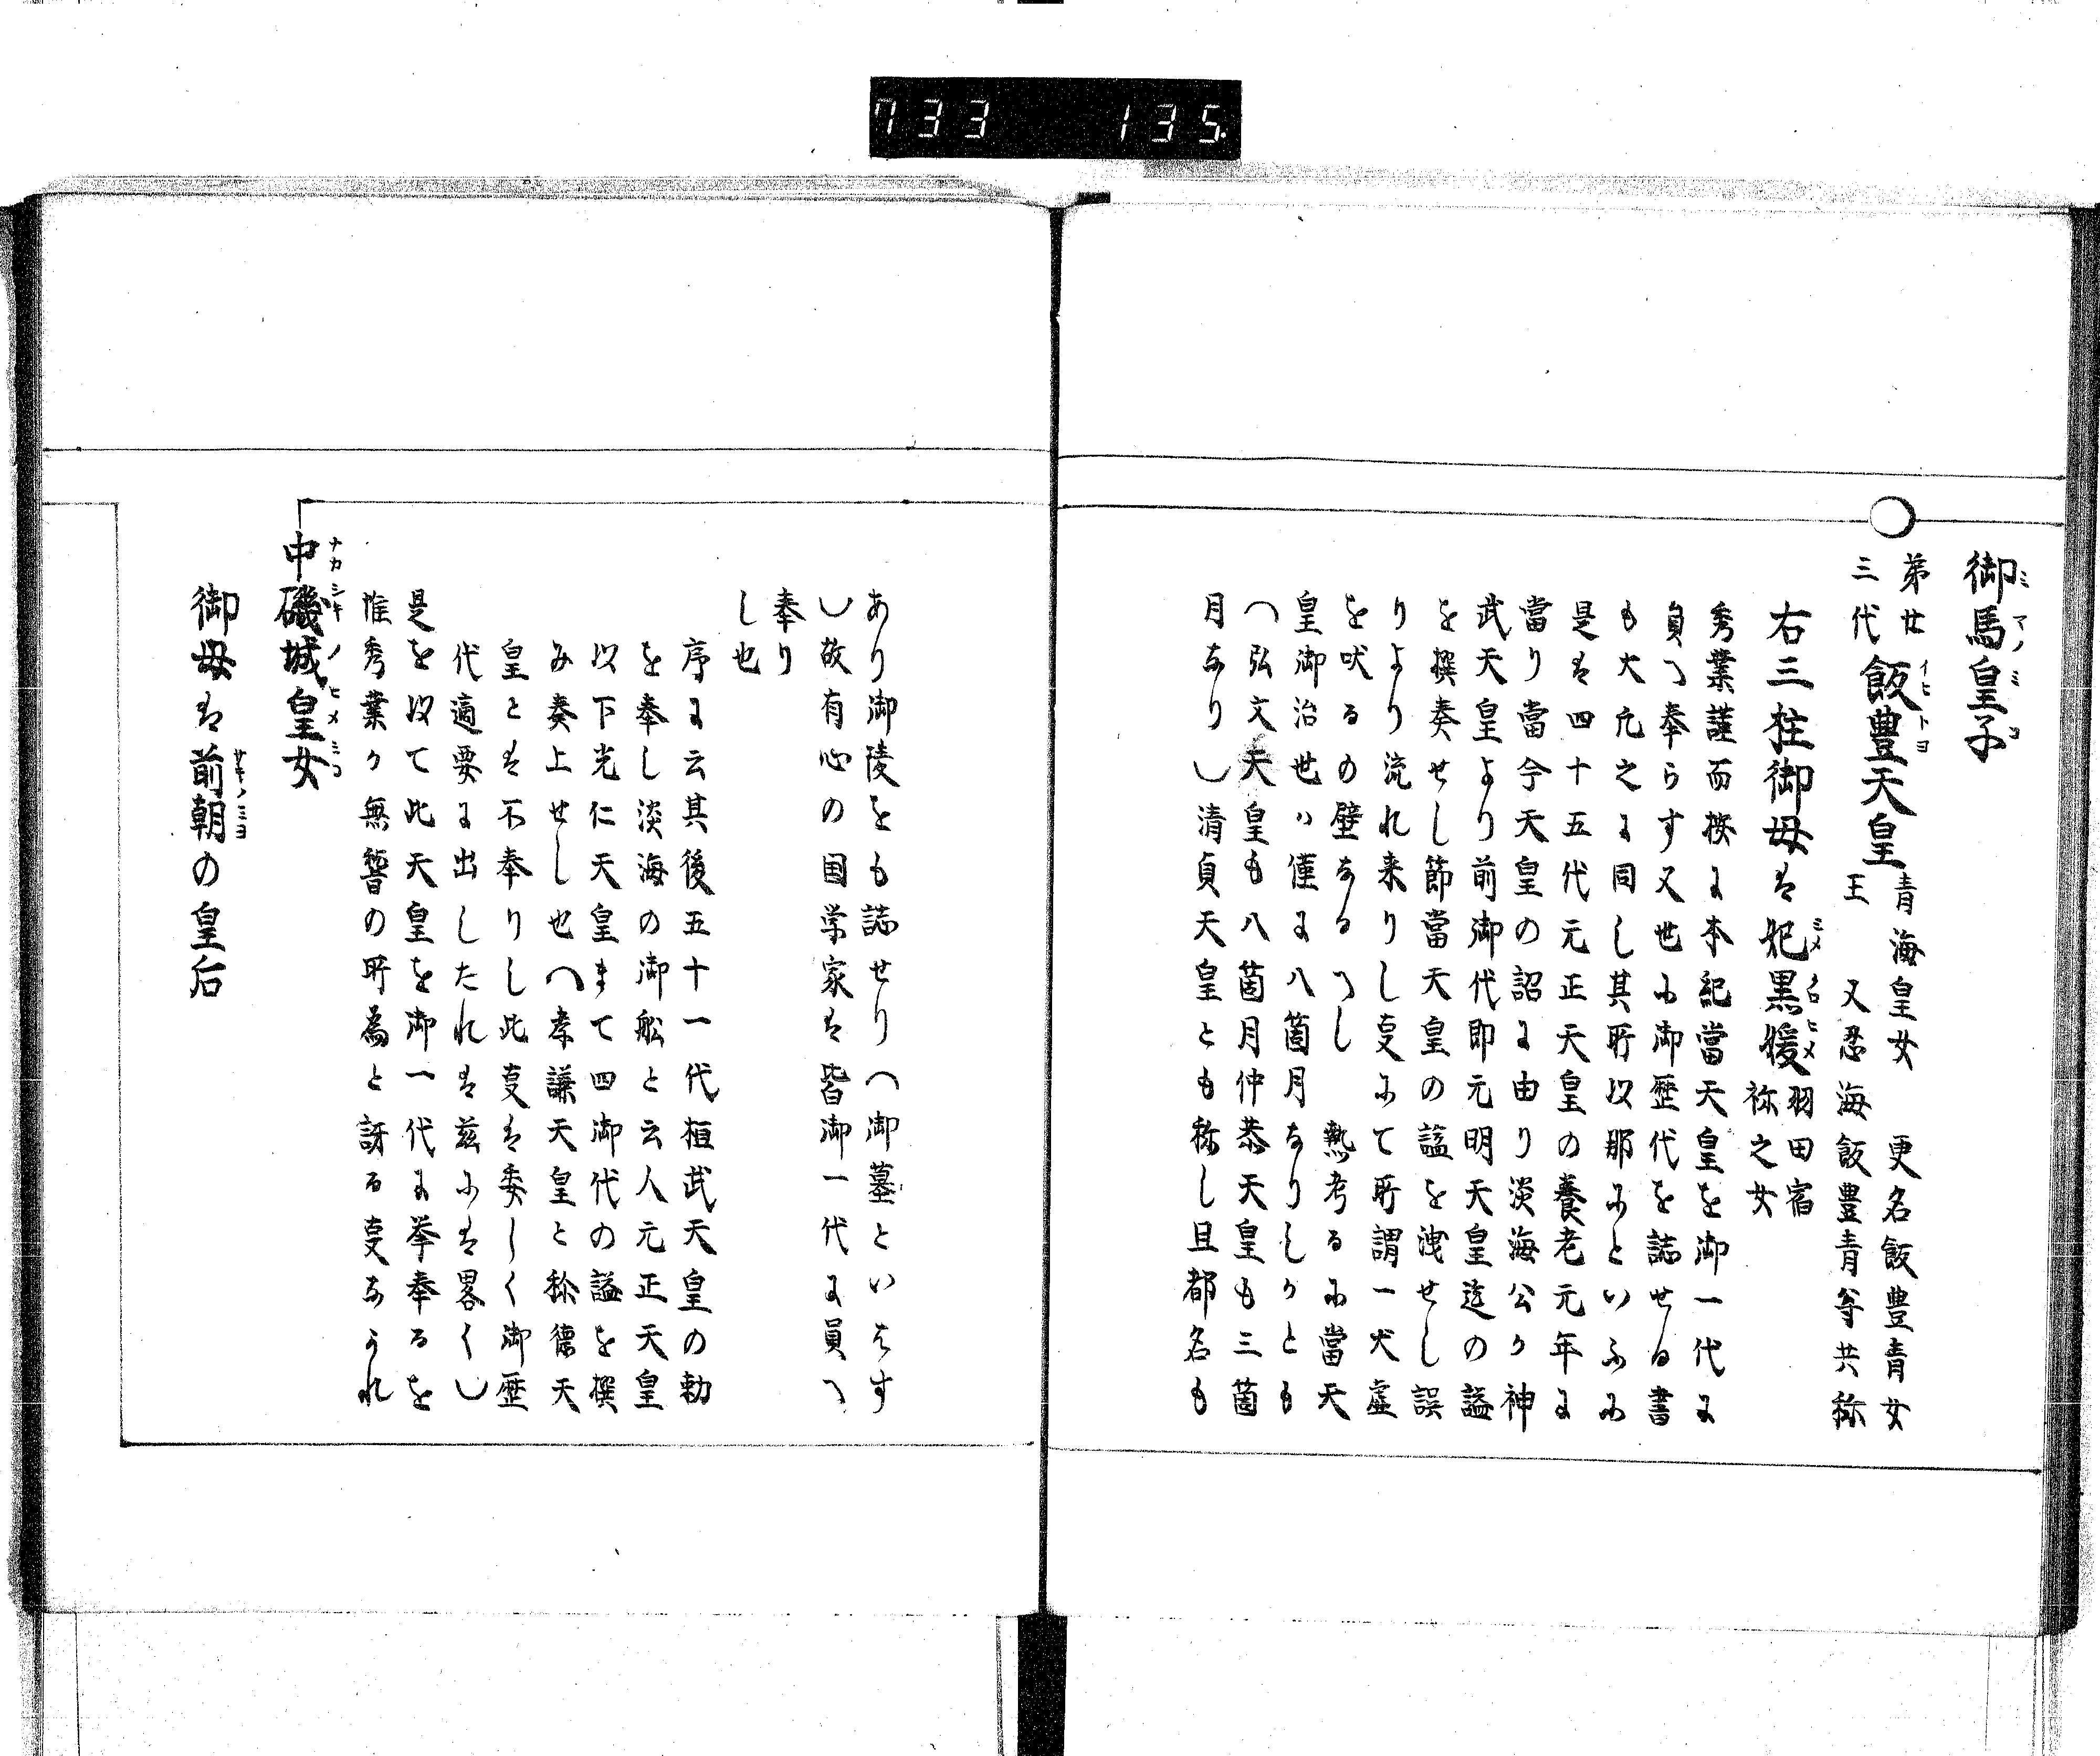 733 135
御馬皇子
ミマノミコ
第廿
三代
飯豊天皇
イヒトヨ
青海皇女 更名飯豊青女
王 又忍海飯豊青等共称
右三柱御母は妃黒媛
ミメクロヒメ
羽田宿
祢之女
秀業謹而按に本紀當天皇を御一代に
員へ奉らす又世に御歴代を誌せる書
も大凢之に同し其所以那にといふに
是は四十五代元正天皇の養老元年に
當り當今天皇の詔に由り淡海公か神
武天皇より前御代即元明天皇迄の謚
を撰奏せし節當天皇の謚を洩せし誤
りより流れ来りし叓にて所謂一犬虚
を吠るの壁なるへし 熟考るに當天
皇御治世ハ僅に八箇月なりしかとも
(弘文天皇も八箇月仲恭天皇も三箇
月なり)清貞天皇とも称し且都名も
あり御陵をも誌せり(御墓といはす
)故有心の国学家は皆御一代に員へ
奉り
し也
序に云其後五十一代桓武天皇の勅
を奉し淡海の御舩と云人元正天皇
以下光仁天皇まて四御代の謚を撰
み奏上せし也(孝謙天皇と称徳天
皇とは不奉りし此叓は委しく御歴
代適要に出したれは茲には畧く)
是を以て此天皇を御一代に挙奉るを
惟秀業か無訾の所為と訝る叓なかれ
中磯城皇女
ナカシキノヒメミコ
御母は前朝の皇后
サキノミヨ